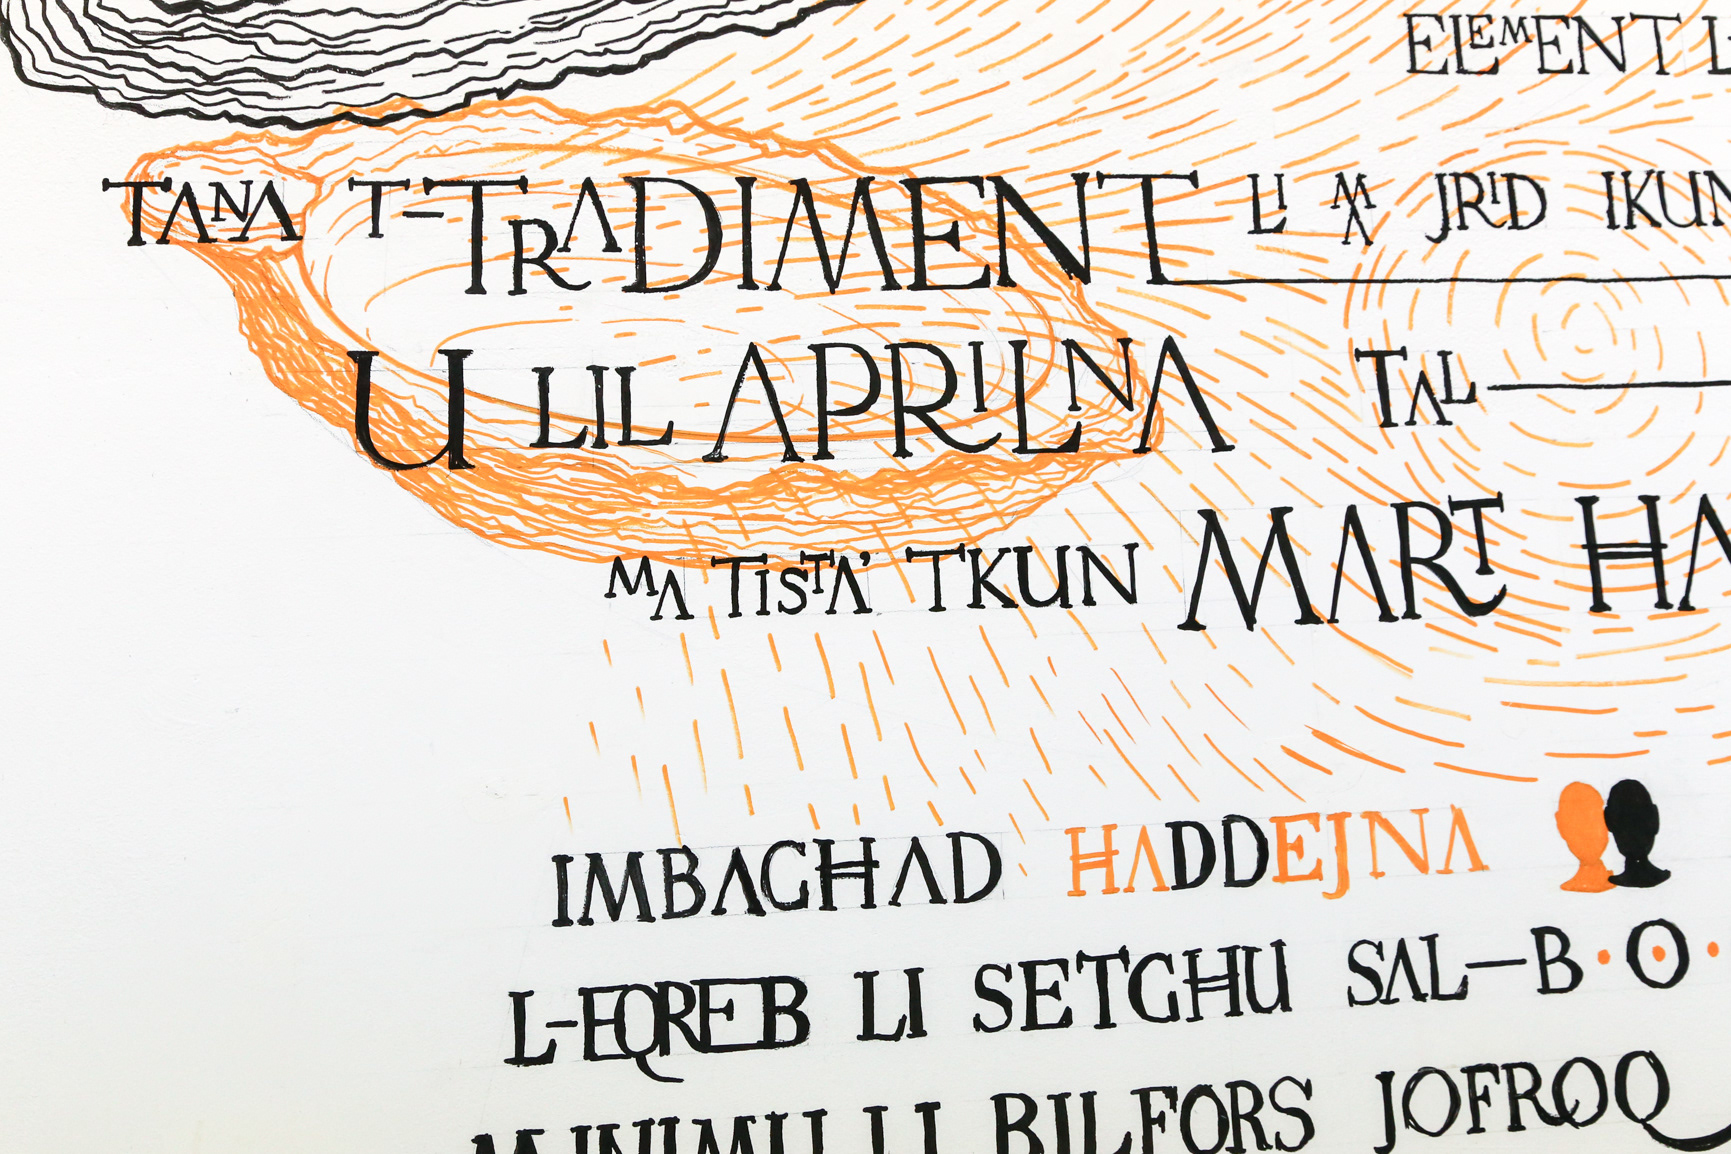 ELEMENT
TANA T-TRADIMENT LI MA JRID IKUN
U LIL APRILNA TAL
MA TISTA' TKUN MART
IMBAGĦAD ĦADDEJNA
L-EQREB LI SETGĦU SAL-B·O·
MINIMU LI BILFORS JOFROQ